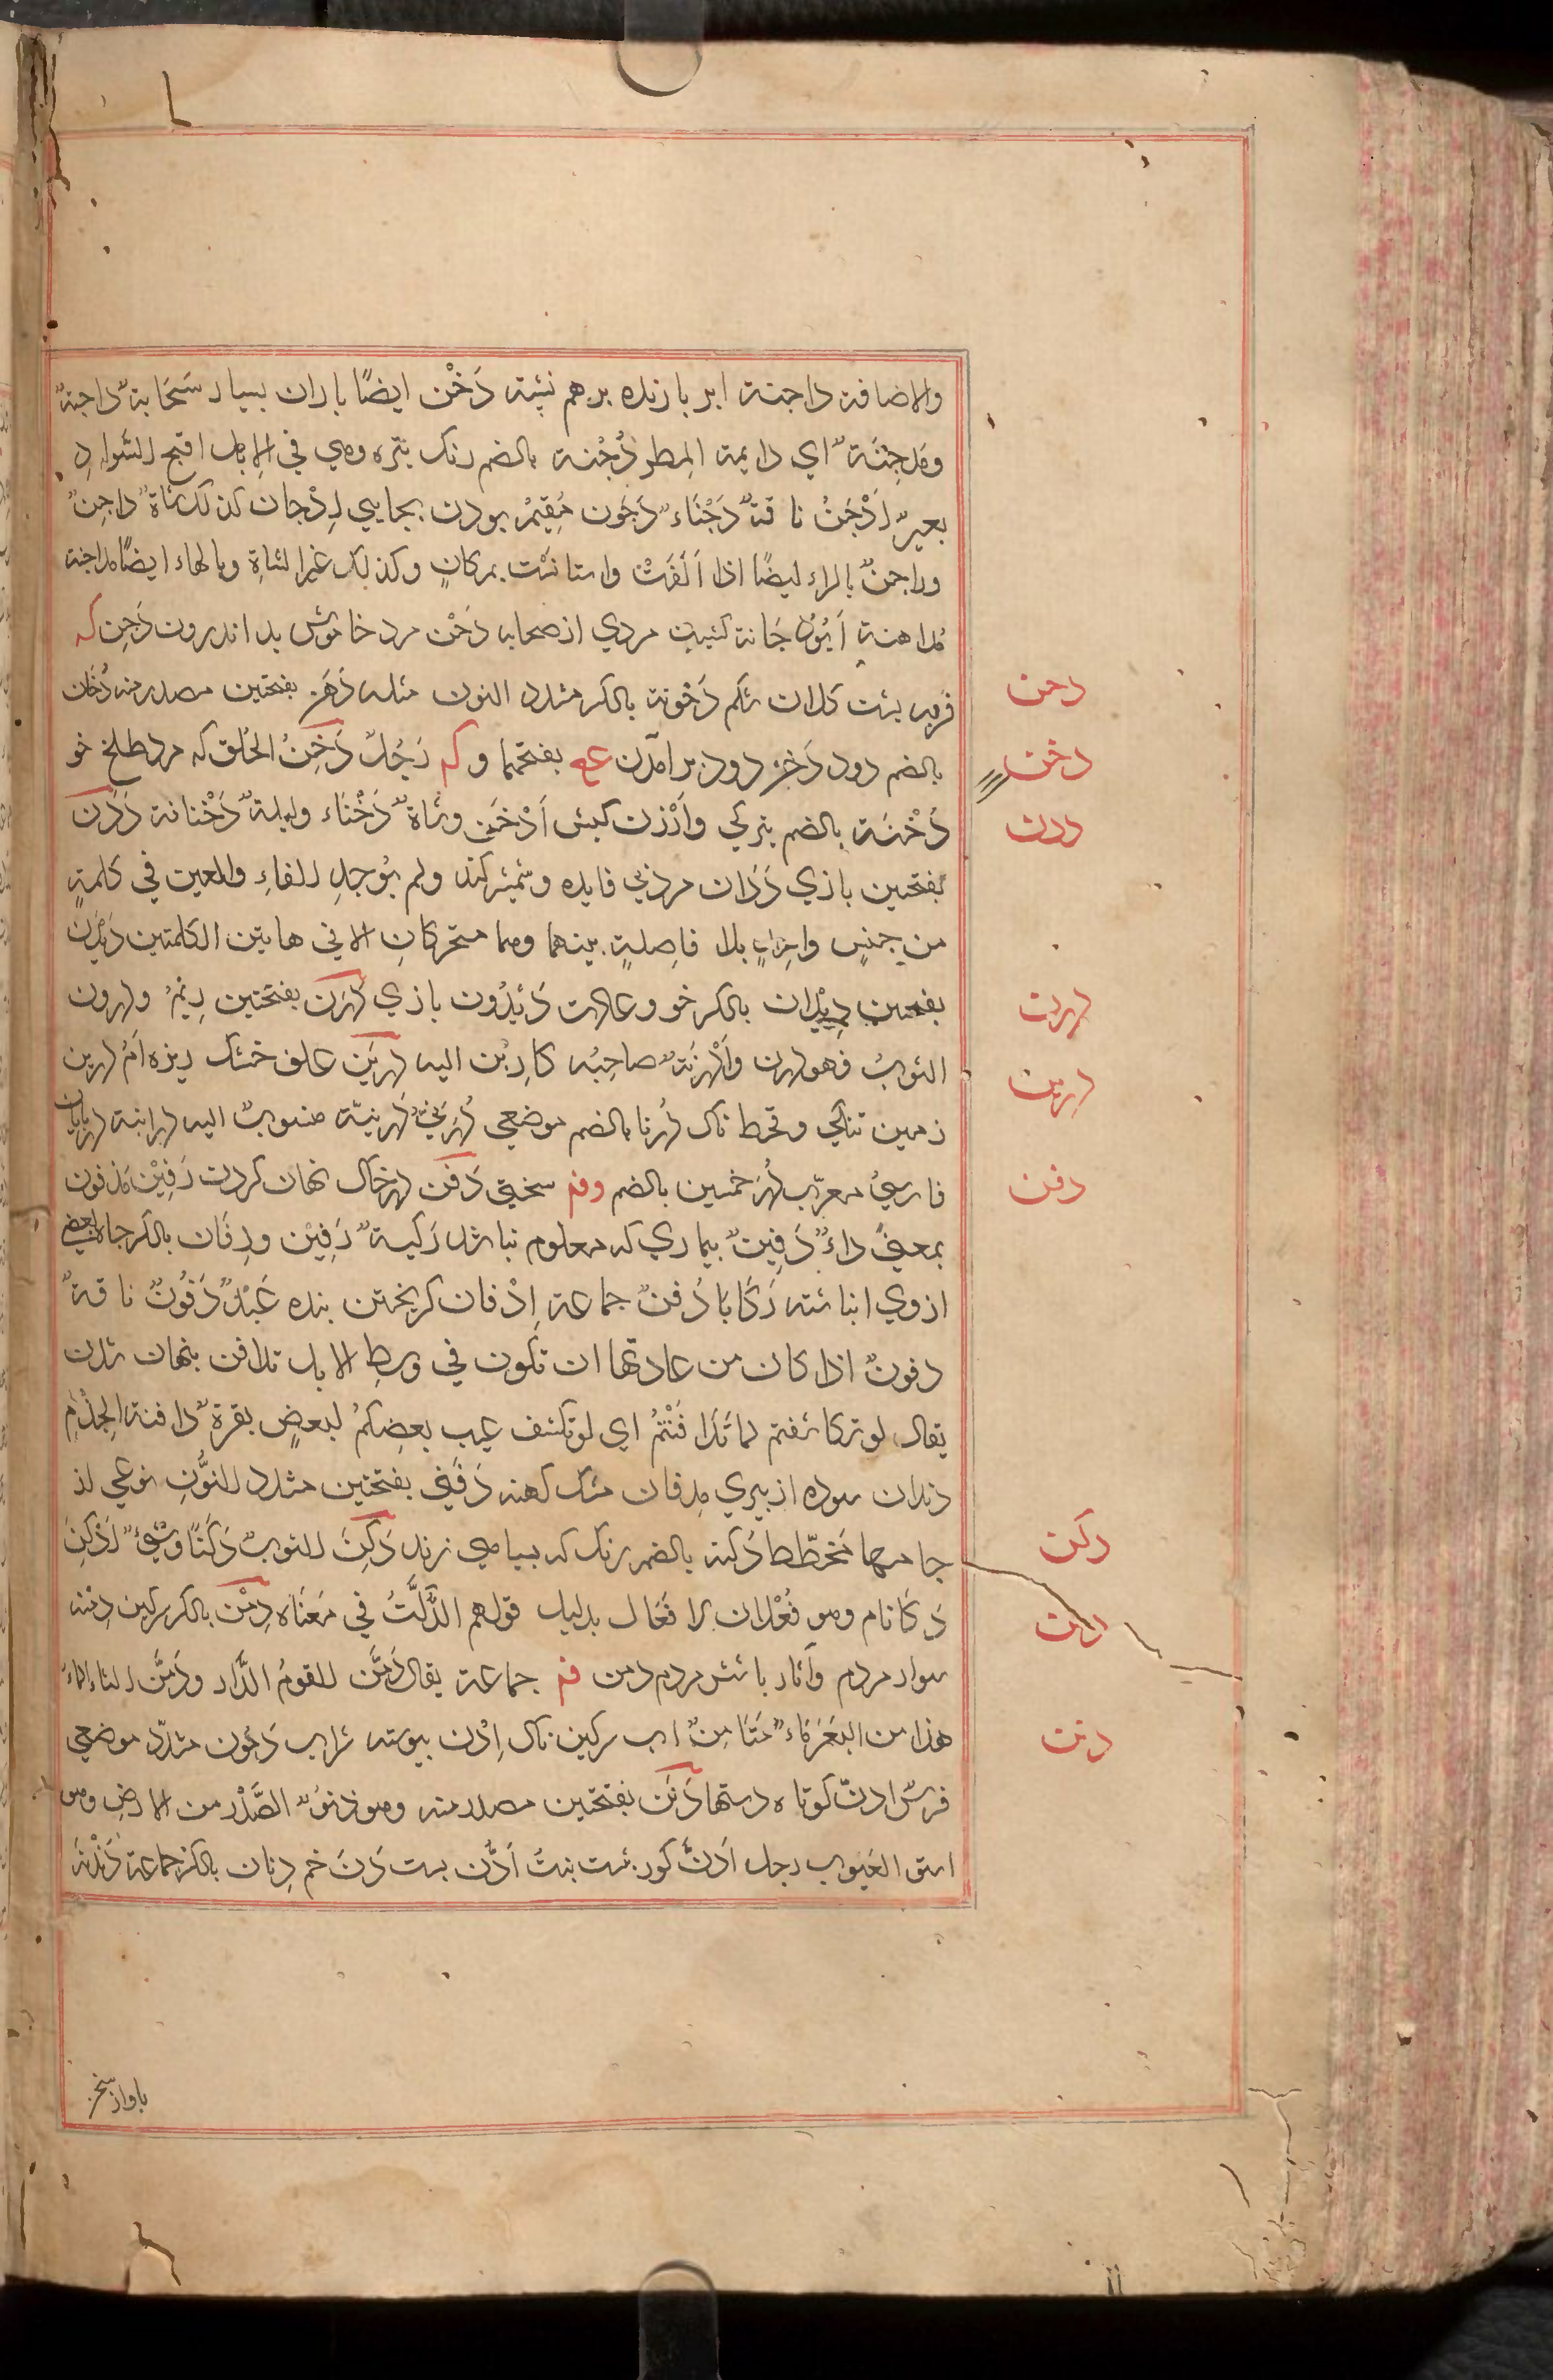 والاضافة داجنة ابر بارنده برهم نشسته دَخْن ايضًا باران بسيار سَحَابةٌ داجنةٌ
ومدجِنَةٌ اي دايمة المطر دُجْنة بالضم رنك تيره وهي في الابل اقبح السَّوادِ
بعيرٌ اَدْجَنُ ناقةٌ دَجْنَاءٌ دَجُون مُقِيم بودن بجايي اِدْجان كذلك شاةٌ داجِنٌ
وراجنٌ بالراء ايضًا اذا اَلِفَتْ واستانَسَت بمركانٍ وكذلك غير الشاةِ وبالهاء ايضًا مداجنة
مُداهنة اَبُو دُجَانة كنيت مردي از صحابه دَخْن مرد خاموش بد اندرون دَحِن كه
فربه پشت كلان شكم دَحْونة بالكسر مشدد النون مثله دَحَن بفتحتين مصدر منه دُخَان
بالضم دود دَخْن دود برامدن عع بفتحهما و كه رَجُلٌ دَخِنُ الخُلق كه مرد طلخ خو
دُخْنَة بالضم تيركي واَرْزن كبش اَدْخَن وشاةٌ دَخْنَاء وليلةٌ دَخْنانة دَدَن
بفتحين بازي دَدَان مرد بي فايده وشمشير كند ولم يُوجد الفاءِ والعين في كلمةٍ
من جنسٍ واحِدٍ بلا فاصِلةٍ بينهما وهما متحركانِ الا في هايتن الكلمتين دَيْدَن
بفتحين دِيْدَان بالكسر خو وعادت دَيْدَون بازي دَرَن بفتحتين رِيم ودرون
الثوبُ فهو درن واَدْرَنَهٌ صاحبُه كا دِبُن اليه دَرين علف خشك ريزه اُمُّ دَرين
زمين تنكي وقحط ناك دُرنا بالضم موضعي دُرَنيٌّ دُرنيّة منسوب اليه درابنة دربانان
فارسيٌ معرّب دُرَخمين بالضم وفم سختي دَفْن در خاك نهان كردن دَفِيْن مَدفون
بمعنى داءٌ دَفِينٌ بيماري كه معلوم نباشد رَكيةٌ دَفِيْن ودِفَان بالكسر جاه بعضي
از وي انباشته رَكَايَا دُفنٌ جماعة اِدْفان كريختن بنده عَبْدٌ دَفُونٌ ناقةٌ
دفونٌ اذا كان من عادتها ان تكون في وسطِ الابل تدافن پنهان شدن
يقال لو تركاشفتم لما تَدَا فَنْتُمْ اي لو تكشف عيب بعضِكُمْ لبعضٍ بقرةٌ دافنة الجذم
دندان سوده از پيري مِدفان مشك كهنه دَفَني بفتحتين مشدد النُّونِ نوعي از
جامها مخطّطا دُكنة بالضم رنك كه بسياهي زند دَكِنَ الثوبُ دَكَنًا وشَيْءٌ اَدْكَنُ
دُكَّانام وهو فُعْلان لا فُعَّال بدليل قولهم الدَّكَّتُ في مَعْنَاه دِمْن بالكسر سركين دِمْنة
سواد مردم وآثار باشش مردم دمن فم جماعة يقال دَمَّن القومُ الدَّار ودَمَّن الشاءُ الماءَ
هذا من البَعَر مَاءٌ مُتَدَا مِنٌ اب سركين ناك اِدْن پيوسته شراب دَمُّون مشدّد موضعي
فرسٌ ادنّ كوتاه دستها دَنَن بفتحتين مصدر منه وهو دنوٌ الصَّدْر من الارضِ وهو
اسق العَيوب رجل اَدَنّ كوز پشت بنتُ اَدُّن بست دَنَ خم دِنان بالكسر جماعة دَنْدَنة
باواز سخن
دحن
دخن
ددن
درن
درين
دفن
دكن
دمن
دنن